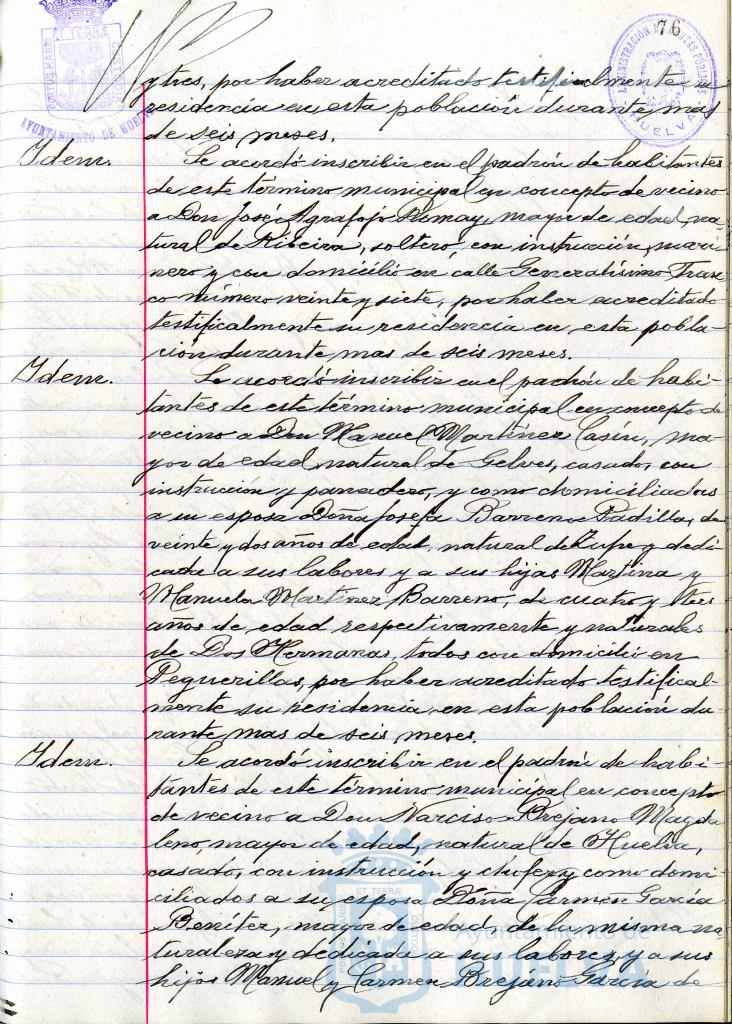 76
AYUNTAMIENTO DE HUELVA
HUELVA
y tres, por haber acreditado testificalmente su
residencia en esta población durante mas
de seis meses.
Idem.
Se acordó inscribir en el padrón de habitantes
de este término municipal en concepto de vecino
a Don José Agrafojo Romay, mayor de edad, na-
tural de Ribeira, soltero, con instrucción, mari-
nero y con domicilio en calle Generalísimo Fran-
co número veinte y siete, por haber acreditado
testificalmente su residencia en esta pobla-
ción durante mas de seis meses.
Idem.
Se acordó inscribir en el padrón de habi-
tantes de este término municipal en concepto de
vecino a Don Manuel Martínez Casín, ma-
yor de edad, natural de Gelves, casado, con
instrucción y panadero, y como domiciliados
a su esposa Doña Josefa Barreno Padilla, de
veinte y dos años de edad, natural de Lepe y dedi-
cada a sus labores y a sus hijas Martina y
Manuela Martínez Barreno, de cuatro y tres
años de edad respetivamente y naturales
de Dos Hermanas, todos con domicilio en
Peguerillas, por haber acreditado testifical-
mente su residencia en esta población du-
rante mas de seis meses.
Idem.
Se acordó inscribir en el padrón de habi-
tantes de este término municipal en concepto
de vecino a Don Narciso Brejano Magda
leno, mayor de edad, natural de Huelva,
casado, con instrucción y chofer y como domi-
ciliados a su esposa Doña Carmen García
Benítez, mayor de edad, de la misma na-
turaleza y dedicada a sus labores y a sus
hijos Manuel y Carmen Brejano García de
Ayuntamiento de
HUELVA